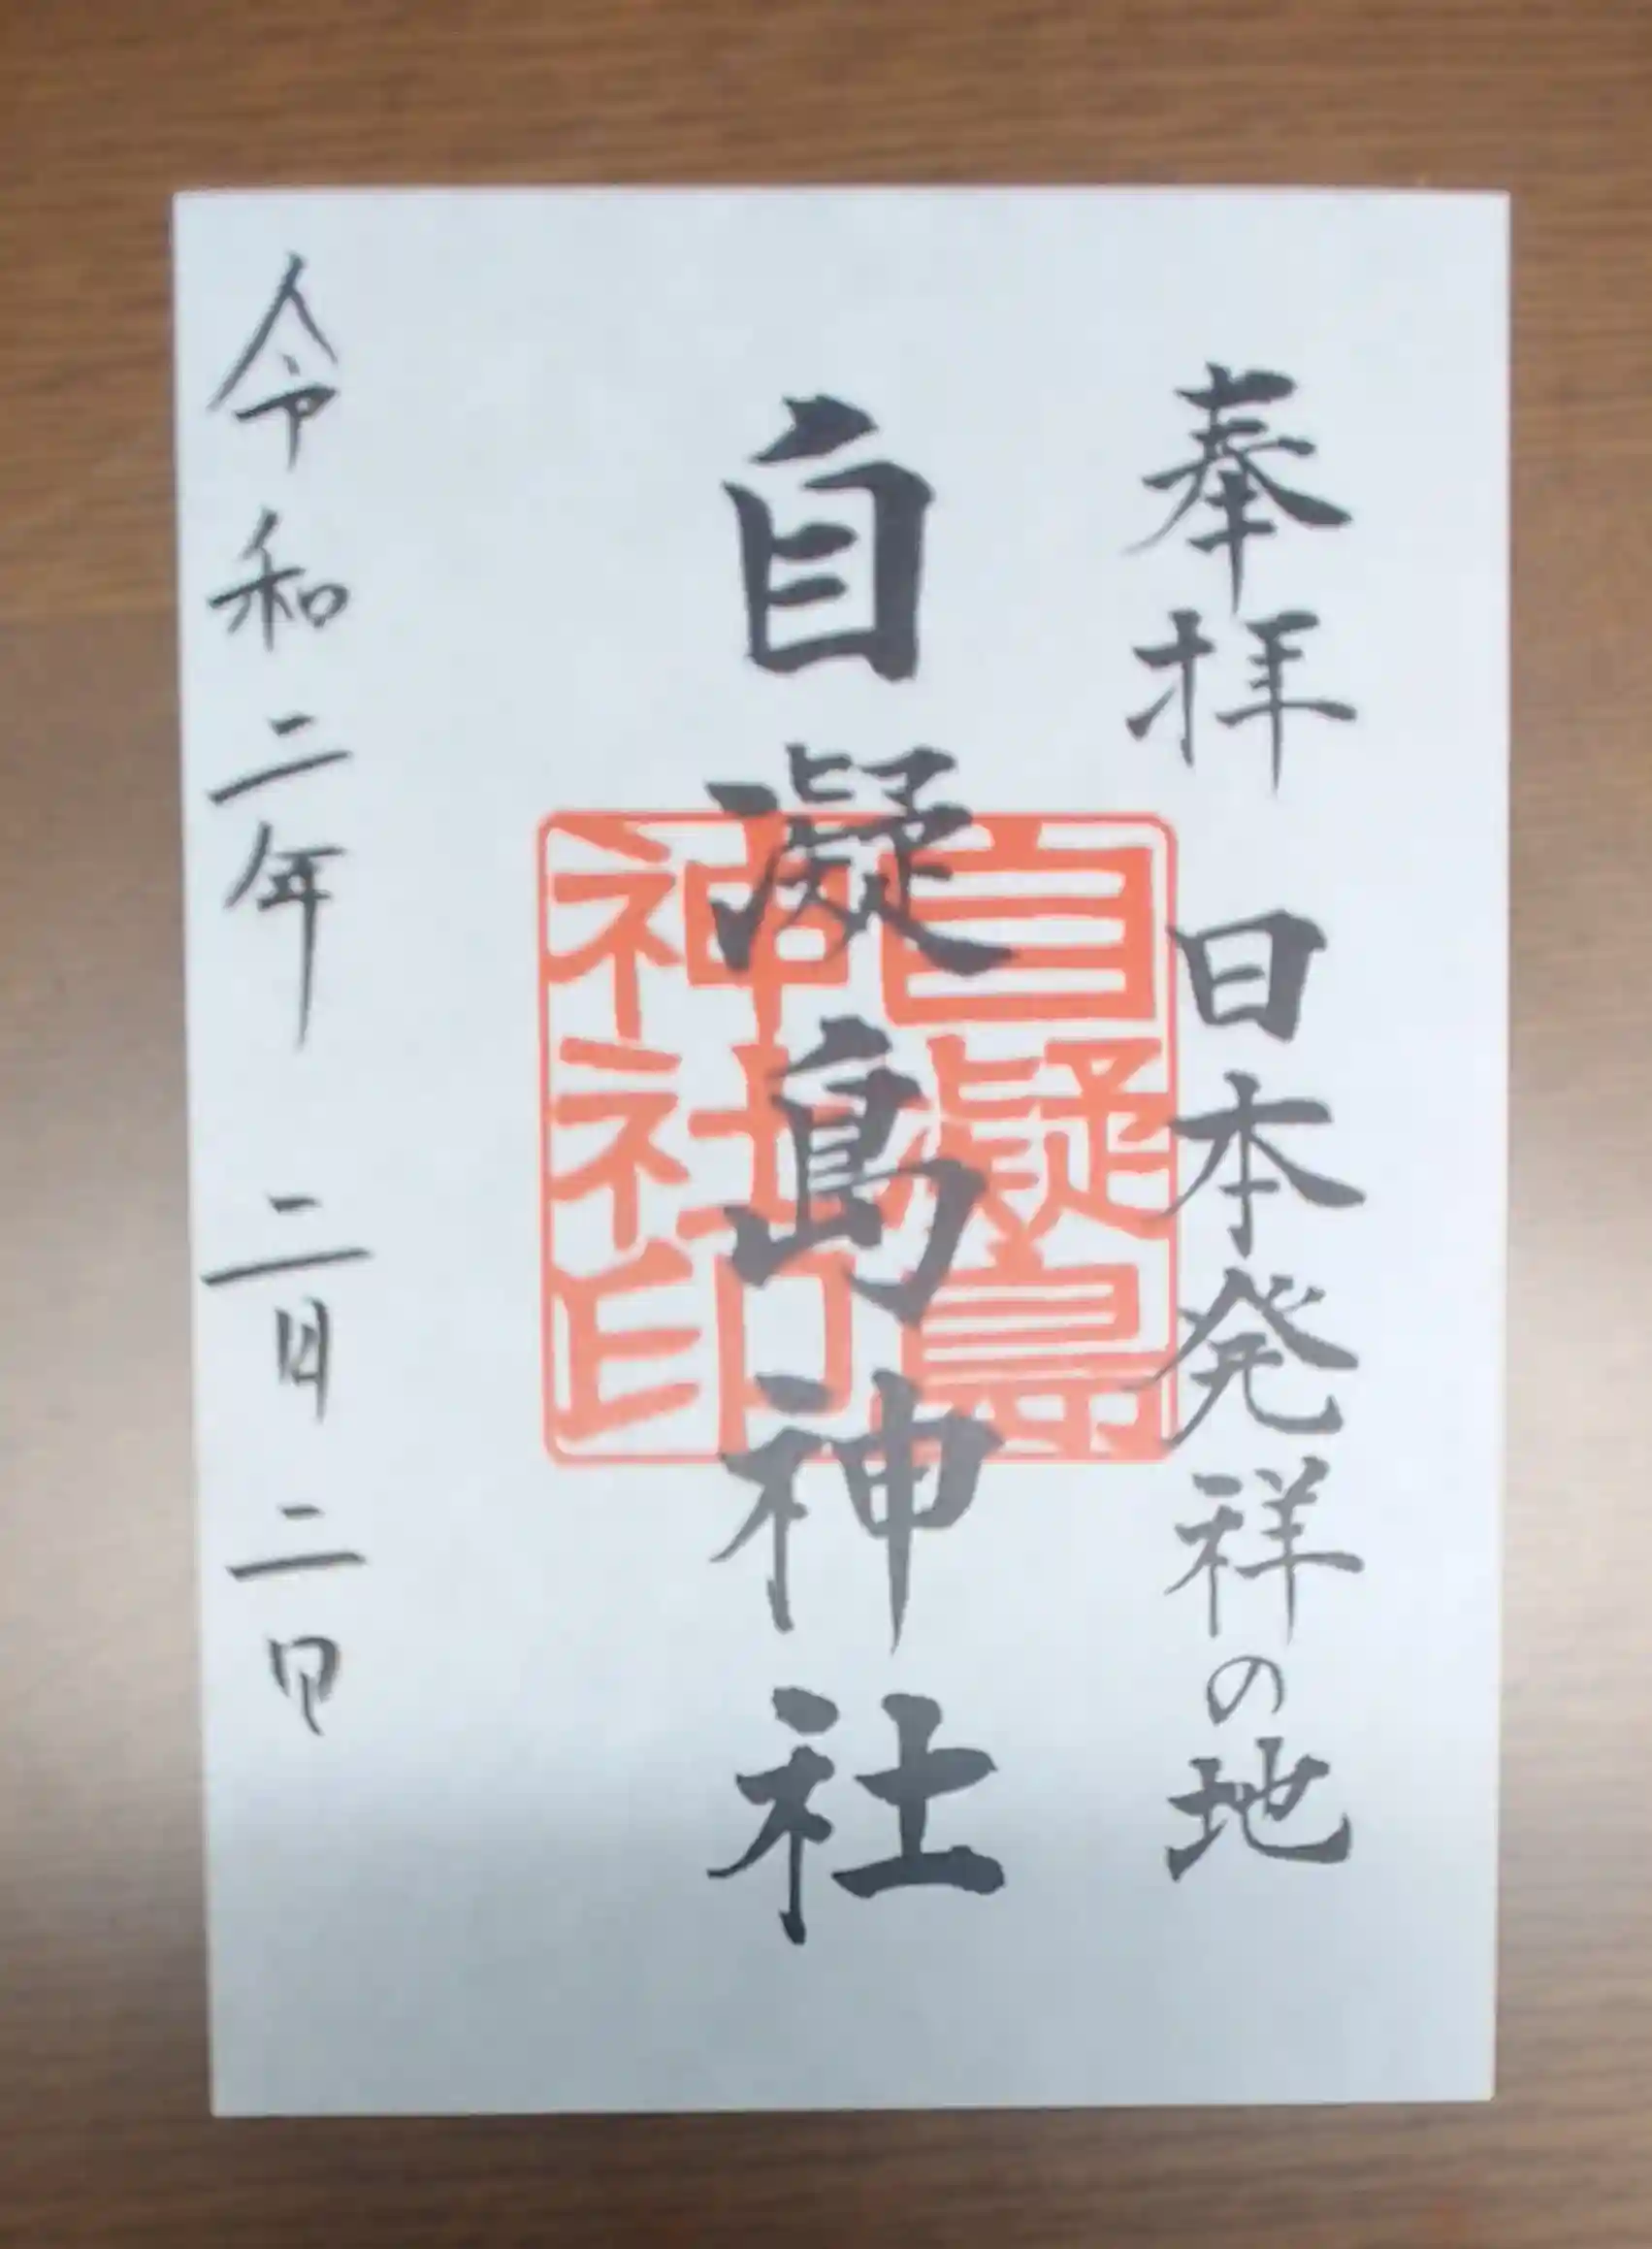 奉拝 日本発祥の地
自凝島神社
自凝島
神社印
令和二年 二月 二日